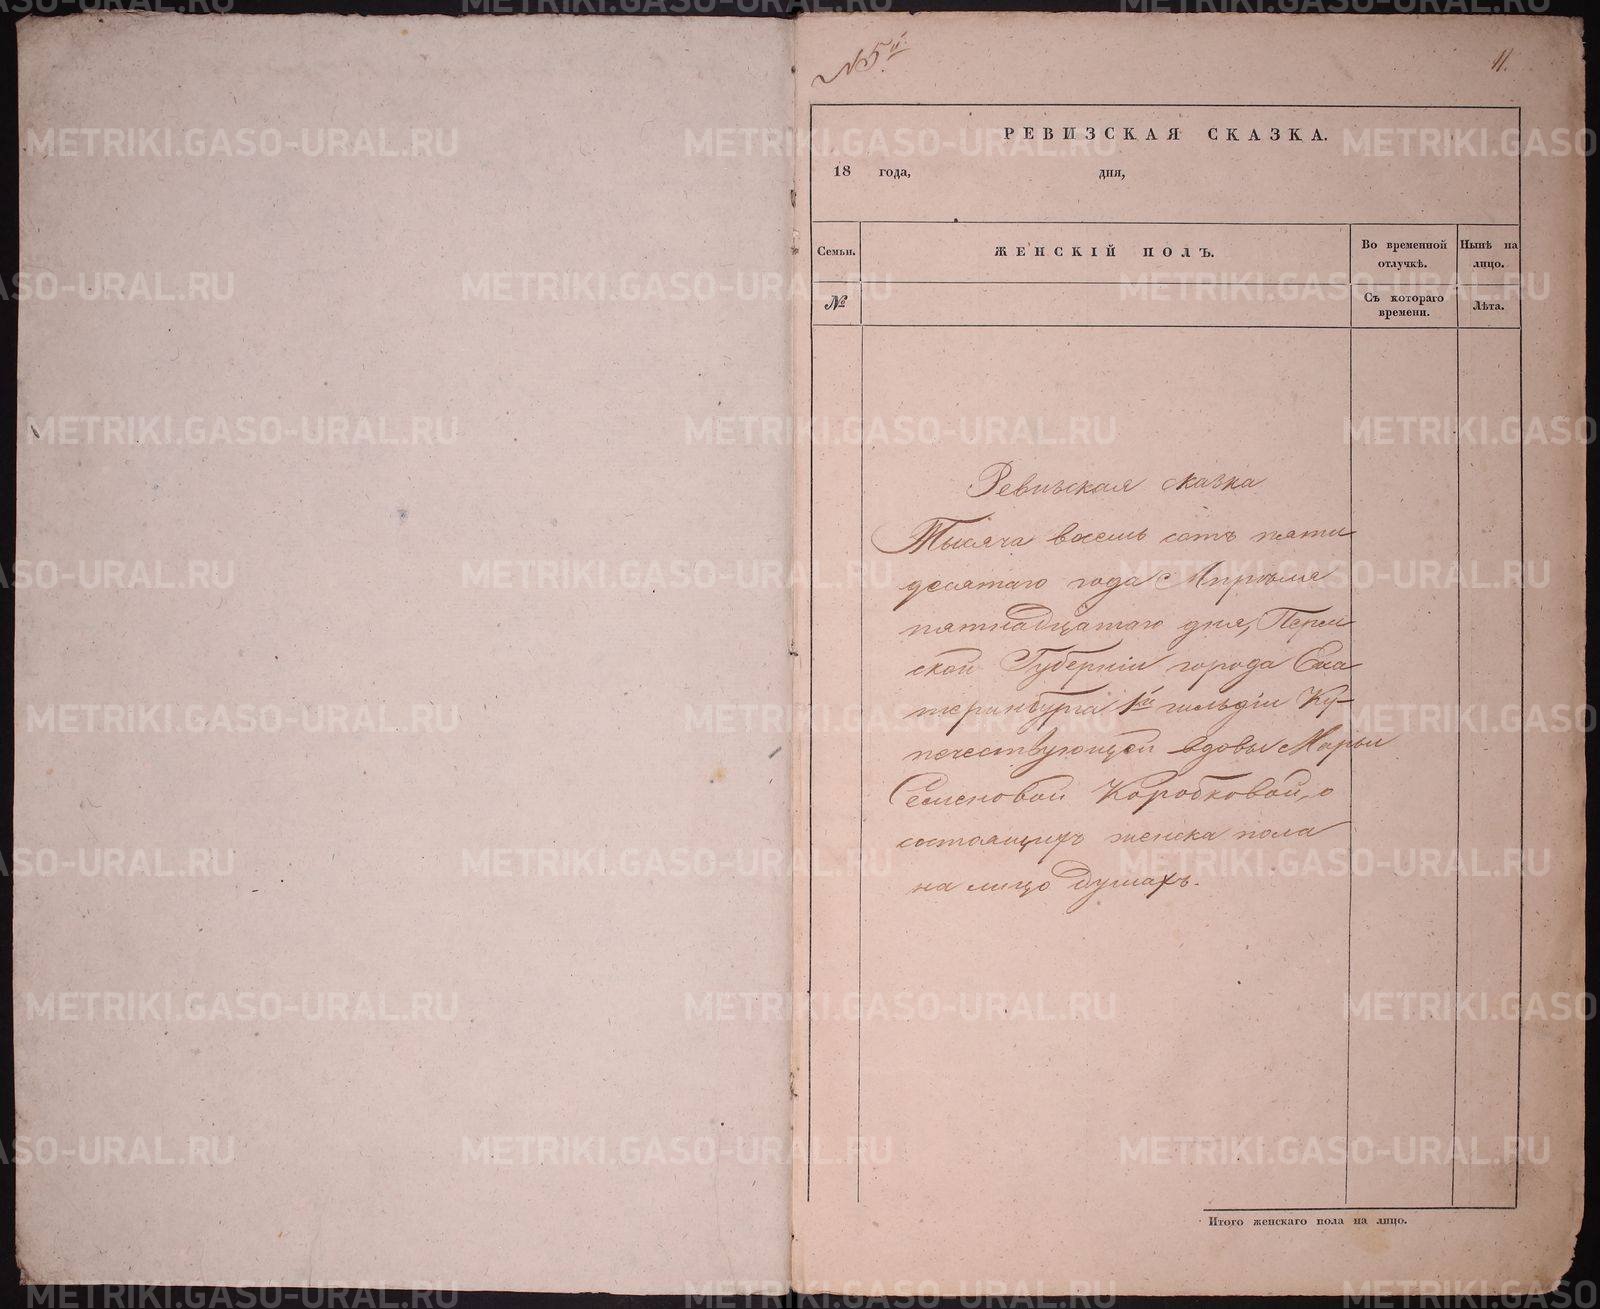 № 5й.
11.
РЕВИЗСКАЯ СКАЗКА.
18 года, дня,
Семьи. ЖЕНСКІЙ ПОЛЪ. Во временной отлучкѣ. Нынѣ на лицо.
№ Съ котораго времени. Лѣта.
Ревизская сказка
Тысяча восемь сотъ пяти
десятаго года Апрѣля
пятнадцатаго дня, Перм
ской Губерніи города Ека
теринбурга 1й гильдіи Ку-
печествующей вдовы Марьи
Семеновой Коробковой, о
состоящихъ женска пола
на лицо душахъ.
Итого женскаго пола на лицо.
METRIKI.GASO-URAL.RU